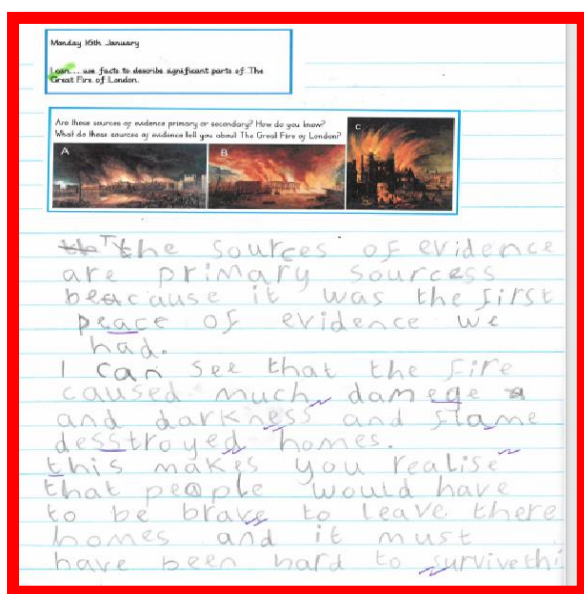 Monday 16th January
I can... use facts to describe significant parts of The
Great Fire of London.
Are these sources of evidence primary or secondary? How do you know?
What do these sources of evidence tell you about The Great Fire of London?
A
B
C
The sources of evidence
are primary sourcess
beacause it was the first
peace of evidence we
had.
I can see that the fire
caused much damege
and darkness and flame
desstroyed homes.
this makes you realise
that people would have
to be brave to leave there
homes and it must
have been hard to survive thi